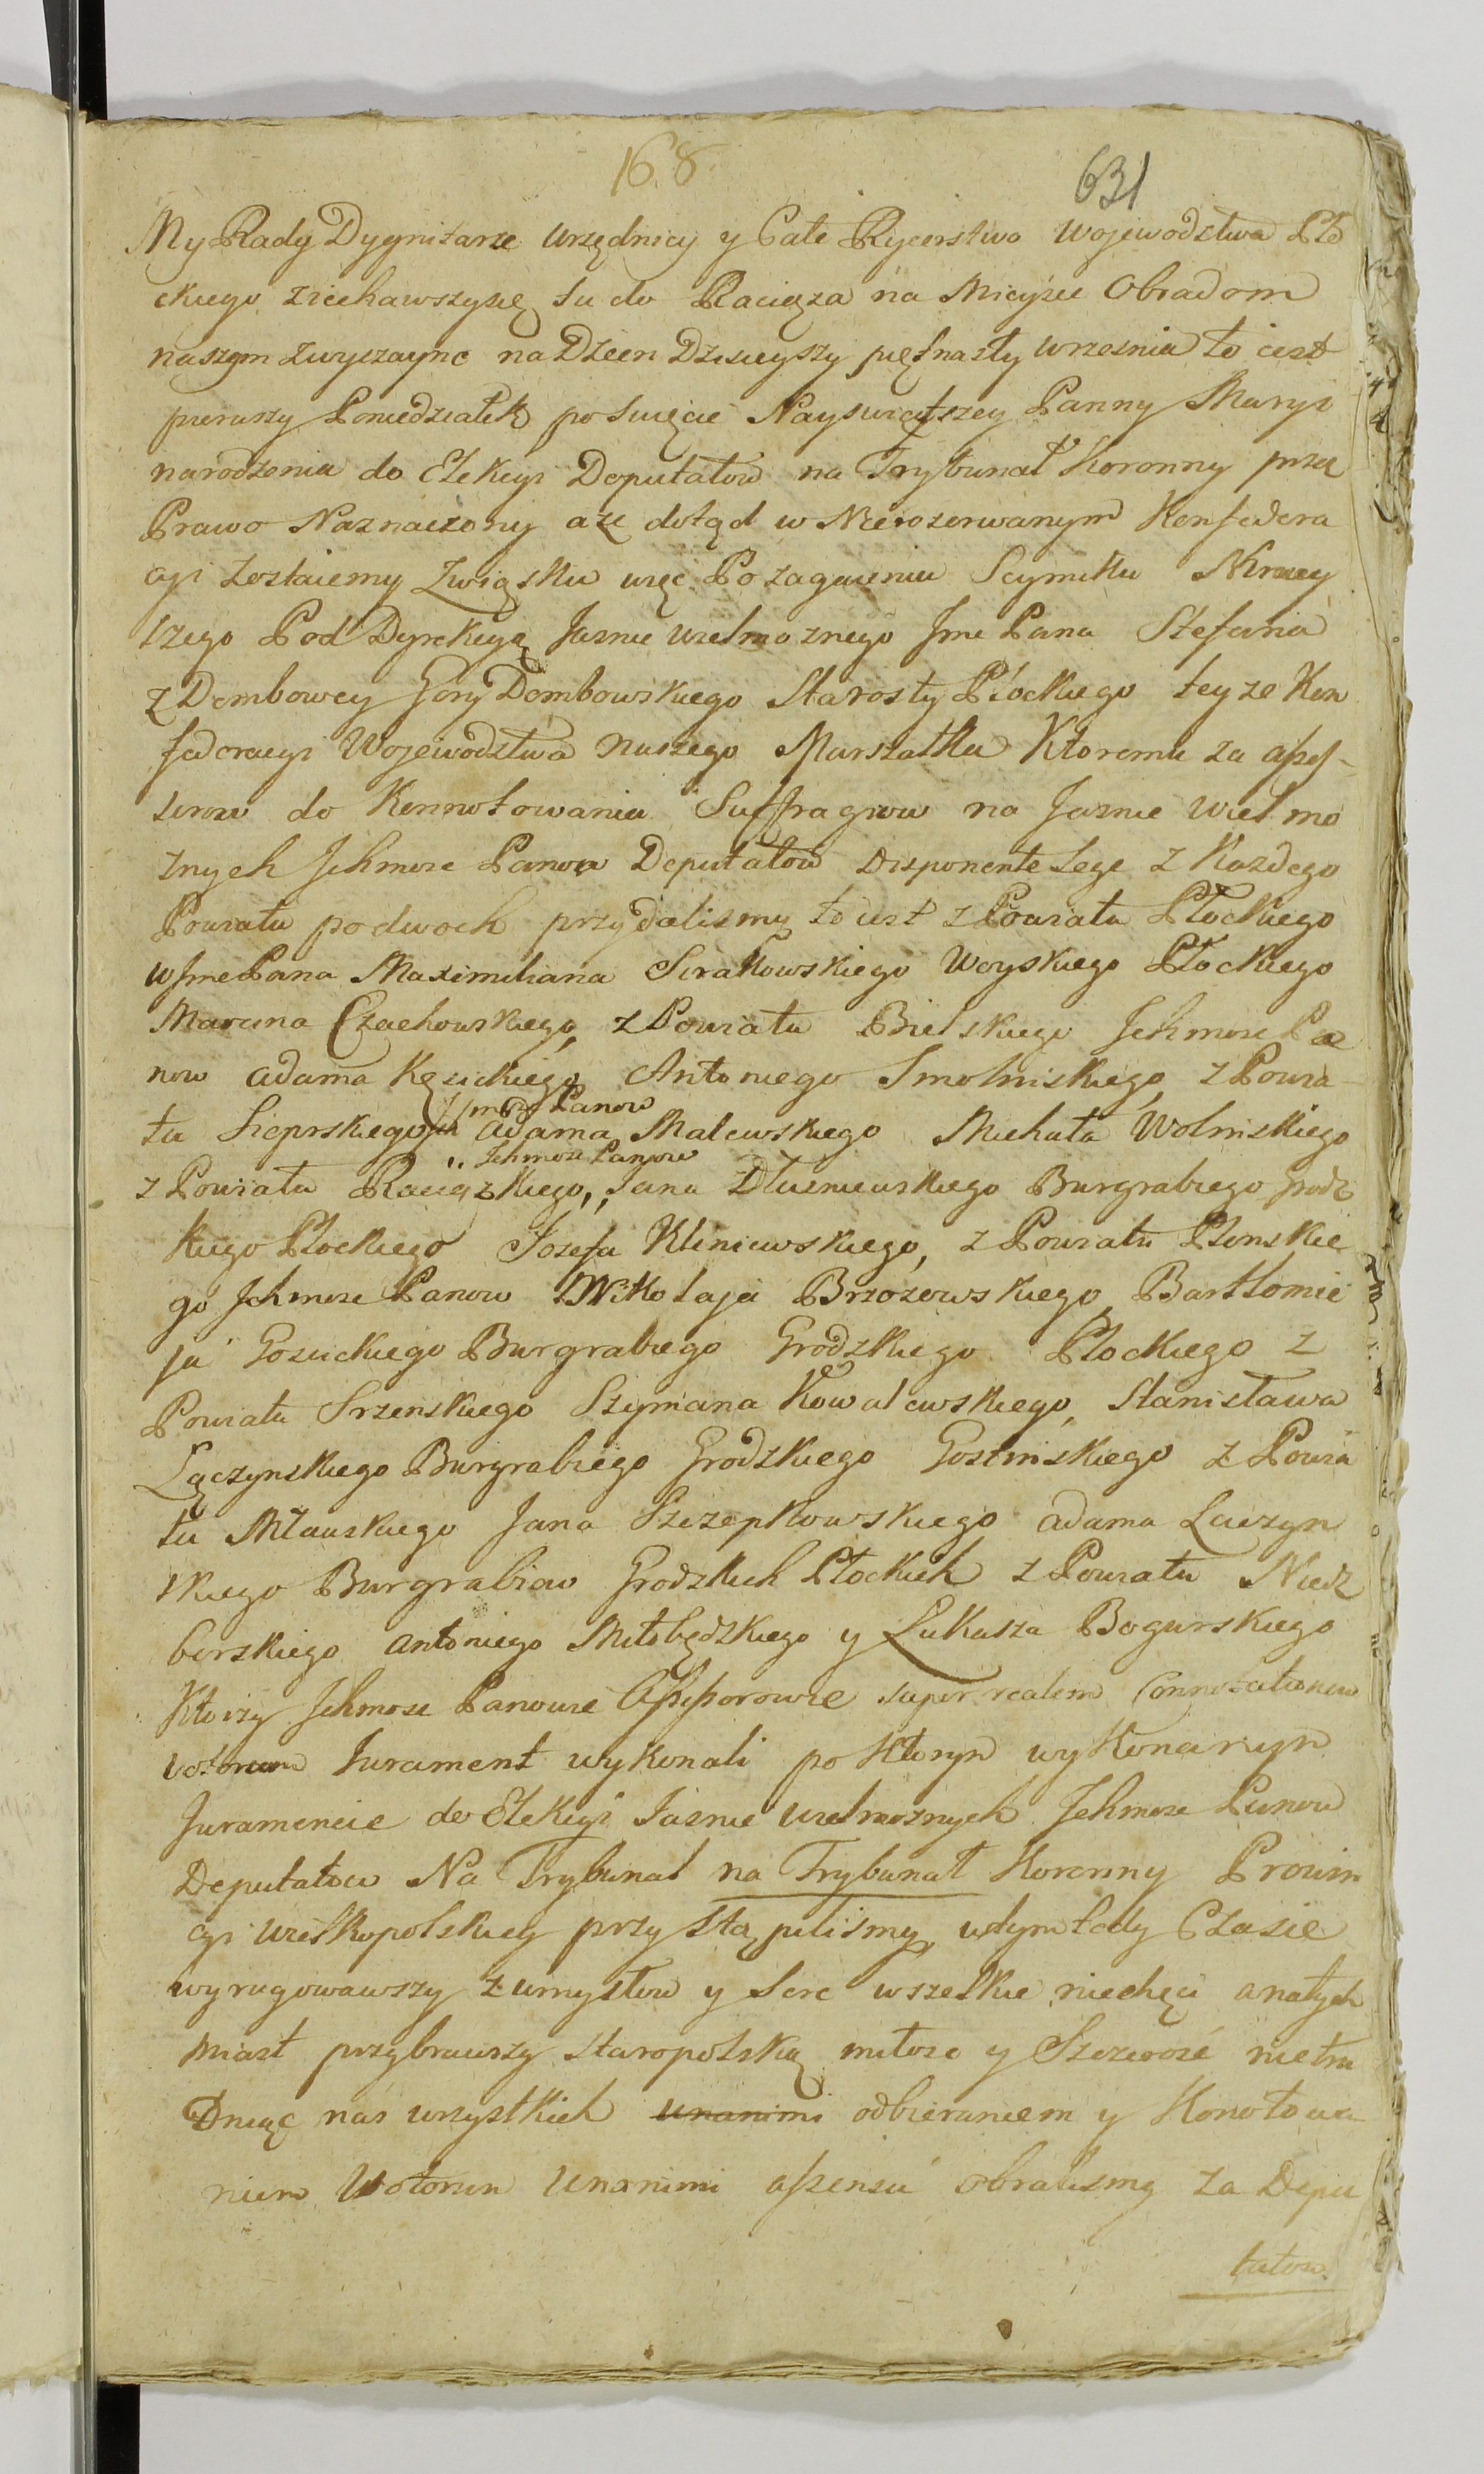 168.
631
My Rady Dygnitarze Urzędnicy y Całe Rycerstwo Wojewodztwa Pło
ckiego ziechawszysię tu do Raciąża na Mieysce Obradom
naszym zwyczayne na Dzien Dzisieyszy piętnasty Wrzesnia to iest
pierwszy Poniedziałek po Swięcie Nayswiętszey Panny Maryi
narodzenia do Elekcyi Deputatow na Trybunał Koronny przez
Prawo Naznaczony aze dotąd w Nierozerwanym Konfedera
cyi zostaiemy Związsku więc Po zagaieniu Seymiku Niniey
szego Pod Dyrekcyą Jasnie Wielmoznego Jme Pana Stefana
z Dembowey Gory Dembowskiego Starosty Płockiego teyze Kon
federacyi Wojewodztwa Naszego Marszałka Ktoremu za asses-
sorow do Konnotowania Suffragiow na Jasnie Wielmo
znych Jchmosc Panow Deputatow Disponente Lege z Kazdego
Powiatu podwoch przydalismy to iest z Powiatu Płockiego
W Jme Pana Maximiliana Sirakowskiego Woyskiego Płockiego
Marcina Czachowskiego, z Powiatu Bielskiego Jchmosc Pa
now Adama Kęsickiego, Antoniego Smolinskiego, z Powia
Jchmosc Panow
tu Sieprskiego Adama Malewskiego Michała Wolinskiego
Jchmosc Panow
z Powiatu Raciązkiego, Jana Dłuzniewskiego Burgrabiego Grodz
kiego Płockiego Jozefa Kliniewskiego, z Powiatu Płonskie
go Jchmosc Panow Mikołaja Brzozowskiego, Bartłomie
ja Gosiickiego Burgrabiego Grodzkiego Płockiego z
Powiatu Srzenskiego Szymana Kowalewskiego, Stanisława
Łączynskiego Burgrabiego Grodzkiego Gostinskiego z Powia
tu Mławskiego Jana Szczepkowskiego Adama Łączyn
skiego Burgrabiow Grodzkich Płockich z Powiatu Niedz
borskiego Antoniego Miłobędzkiego y Łukasza Bogurskiego
Ktorzy Jchmosc Panowie Assessorowie super realem Connotationem
votorum Jurament wykonali po Ktorym wykonanym
Juramencie do Elekcyi Jasnie Wielmoznych Jchmosc Panow
Deputatow Na Trybunał na Trybunał Koronny Prowin
cyi Wielkopolskiey przystąpilismy, wtym tedy Czasie
wyrugowawszy z umysłow y Serc wszelkie niechęci anatych
miast przybrawszy staropolską miłosc y Szczerosć nietru
Dniąc nas wszystkich unanimi odbieraniem y Konotowa-
niem Wotorum Unanimi assensu obralismy za Depu
tatow.